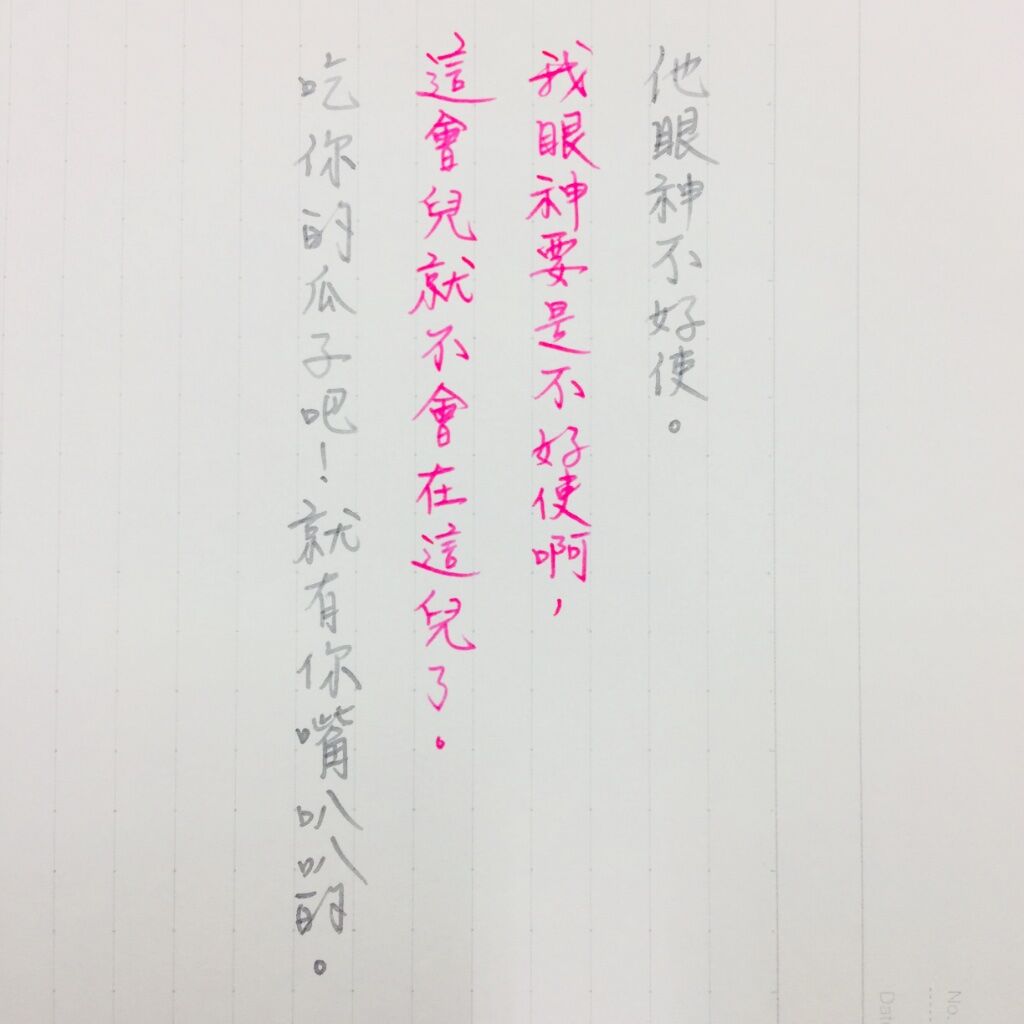 他眼神不好使。
我眼神要是不好使啊，
這會兒就不會在這兒了。
吃你的瓜子吧！就有你嘴叭叭的。
No.
Dat